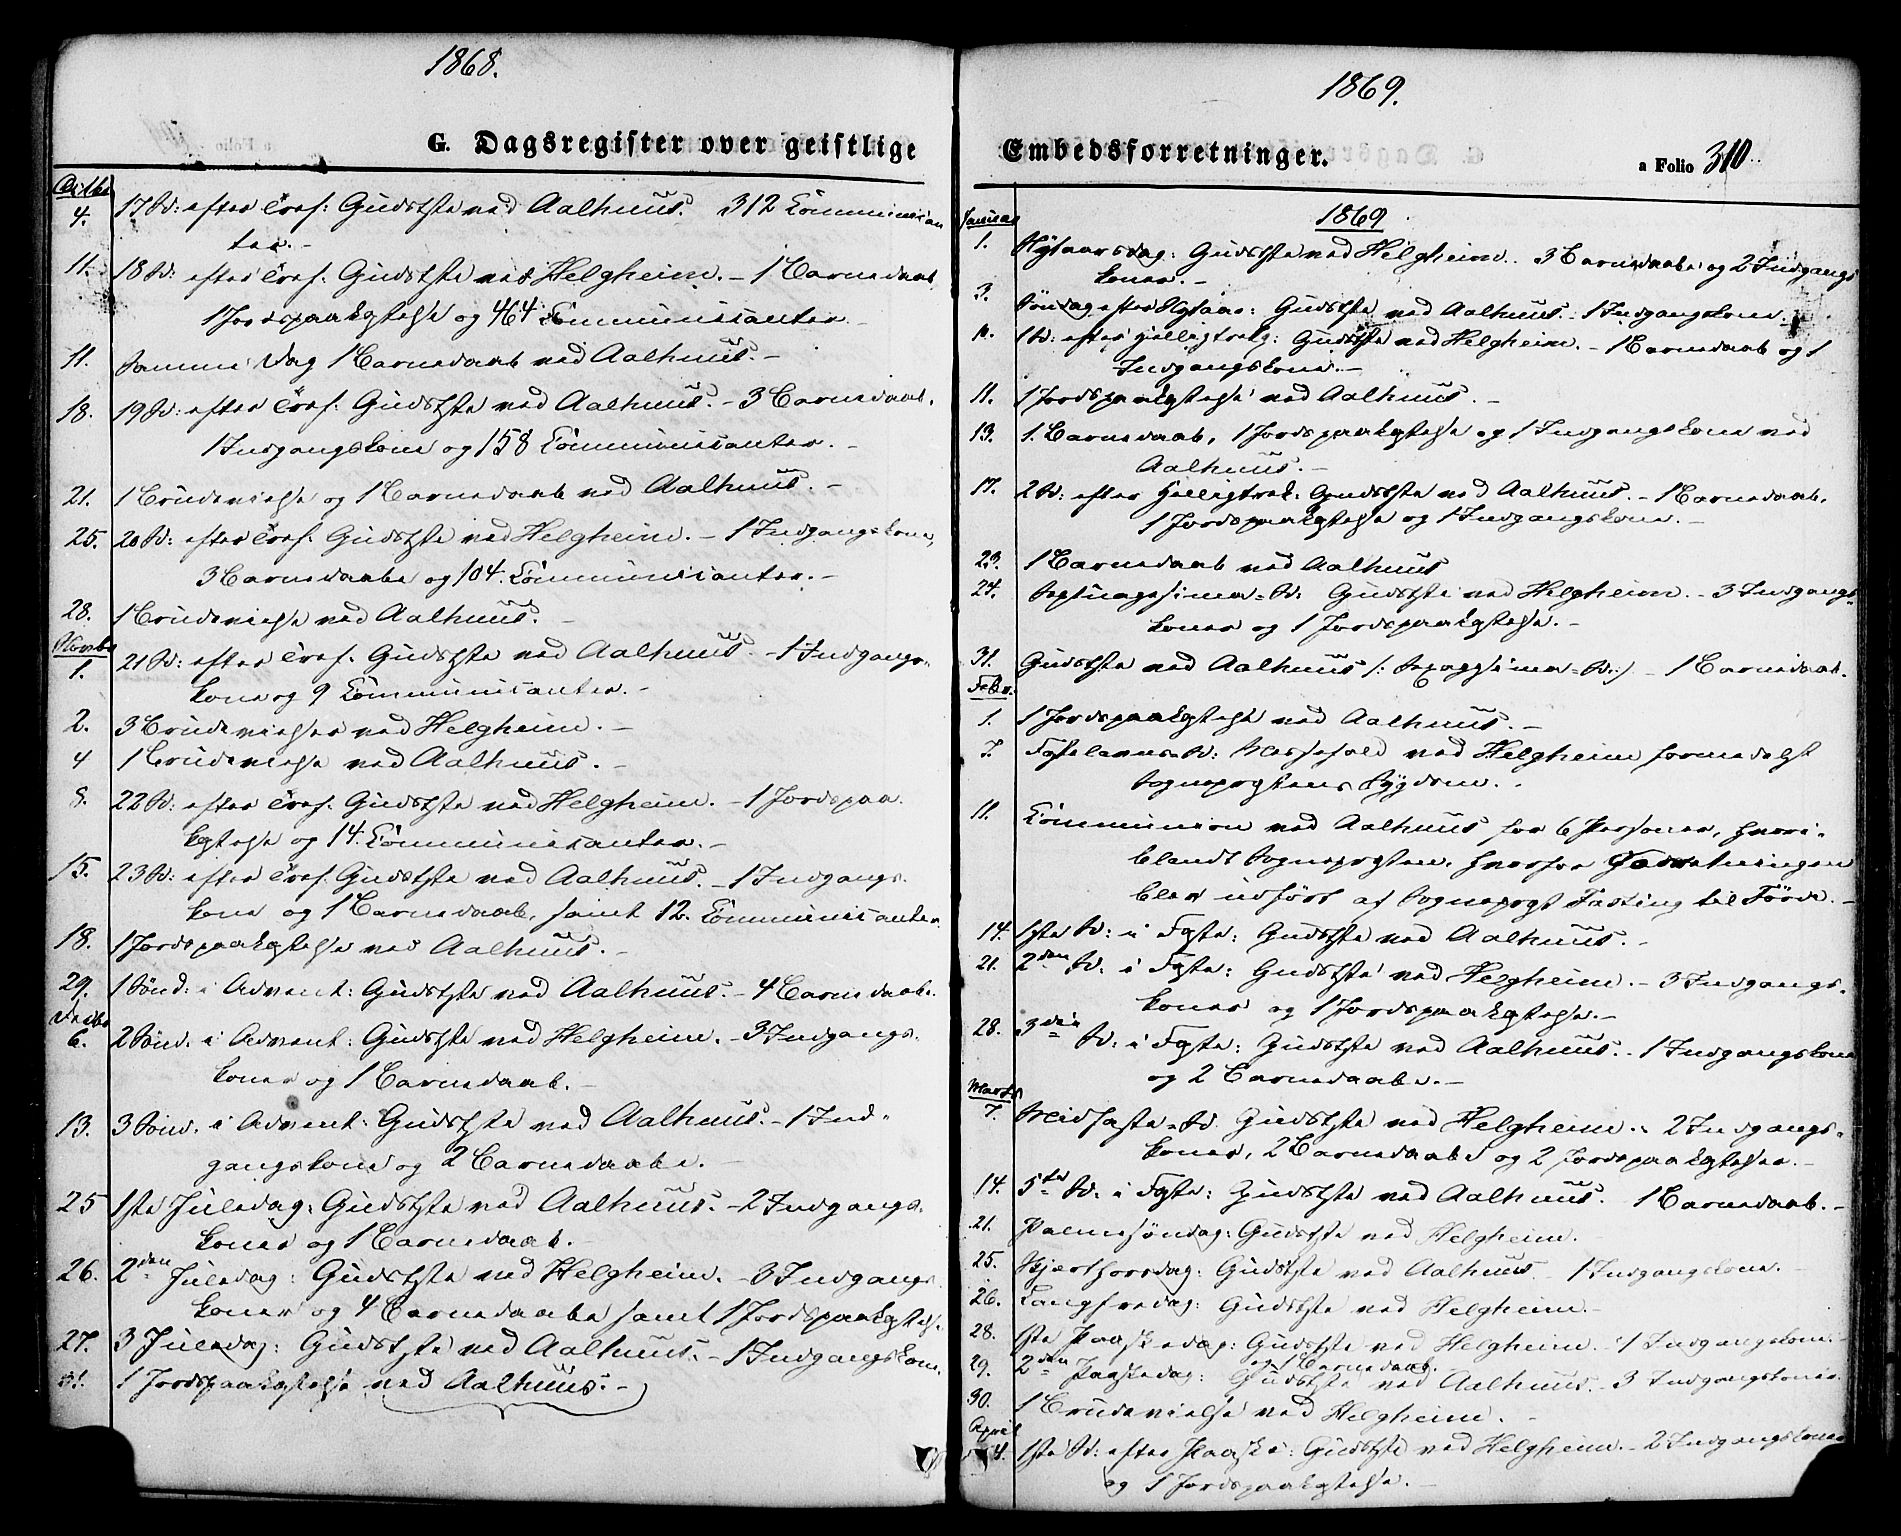 1868.
G. Dagsregister over geistlige
Octbr
4. 17 S: efter Tref: Gudstste ved Aalhuus. 312 Communican
ter. -
11. 18 S: efter Tref: Gudstste ved Helgheim. - 1 Barnedaab
1 Jordspaakastelse og 464 Communicanter. -
11. Samme Dag 1 Barnedaab ved Aalhuus. -
18. 19 S: efter Tref: Gudstste ved Aalhuus. - 3 Barnedaab.
1 Indgangskone og 158 Communicanter. -
21. 1 Brudevielse og 1 Barnedaab ved Aalhuus. -
25. 20 S: efter Tref: Gudstste ved Helgheim. - 1 Indgangskone,
3 Barnedaabe og 104. Communicanter. -
28. 1 Brudevielse ved Aalhuus. -
Novbr
1. 21 S: efter Tref: Gudstste ved Aalhuus - 1 Indgangs-
kone og 9 Communicanter. -
2. 3 Brudevielser ved Helgheim. -
4 1 Brudevielse ved Aalhuus. -
8. 22 S: efter Tref: Gudstste ved Helgheim. - 1 Jordspaa-
kastelse og 14. Communicanter. -
15. 23 S: efter Tref: Gudstste ved Aalhuus. - 1 Indgangs-
kone og 1 Barnedaab, samt 12. Communicanter.
18. 1 Jordspaakastelse ved Aalhuus. -
29. 1 Sønd: i Advent: Gudstste ved Aalhuus. - 4 Barnedaab.
Decbr
6. 2 Sønd. i Advent: Gudstste ved Helgheim. - 3 Indgangs-
koner og 1 Barnedaab. -
13. 3 Sønd. i Advent: Gudstste ved Aalhuus. - 1 Ind-
gangskone og 2 Barnedaabe. -
25 1ste Juledag: Gudstste ved Aalhuus. - 2 Indgangs-
koner og 1 Barnedaab. -
26. 2den Juledag: Gudstste ved Helgheim. - 3 Indgangs-
koner og 4 Barnedaabe samt 1 Jordspaakastelse.
27. 3 Juledag: Gudstste ved Aalhuus. - 1 Indgangskone.
31. 1 Jordspaakastelse ved Aalhuus. -
1869.
Embedsforretninger.
a Folio 310
1869
Januar
1. Nytaarsdag: Gudstste ved Helgheim. 3 Barnedaabe og 2 Indgangs
koner. -
3. Søndag efter Nytaar: Gudstste ved Aalhuus. - 1 Indgangskone.
1 S: efter Helligtrek: Gudstste ved Helgheim. - 1 Barnedaab og 1
Indgangskone. -
11. 1 Jordspaakastelse ved Aalhuus. -
13. 1. Barnedaab, 1 Jordspaakastelse og 1 Indgangskone ved
Aalhuus. -
17. 2 S: efter Helligtrek: Gudstste ved Aalhuus. - 1 Barnedaab.
1 Jordspaakastelse og 1 Indgangskone. -
23. 1 Barnedaab ved Aalhuus
24. Septuagesima-S: Gudstste ved Helgheim. - 3 Indgangs-
koner og 1 Jordspaakastelse. -
31. Gudstste ved Aalhuus /: Sexagesima-S: / - 1 Barnedaab.
Febr.
1. 1 Jordspaakastelse ved Aalhuus. -
7. Fastelavns-S: Messefald ved Helgheim formedelst
Sognepræstens Sygdom. .
11. Communion ved Aalhuus for 6 Personer, hvori-
blandt Sognepræsten, hvorfor Forretningen
blev udført af Sognepræst Fasting til Førde. -
14. 1ste S: i Faste: Gudstste ved Aalhuus. -
21. 2den S. i Faste: Gudstste ved Helgheim. - 3 Indgangs-
koner og 1 Jordspaakastelse. -
28. 3die S: i Faste: Gudstste ved Aalhuus. - 1 Indgangskone
og 2 Barnedaabe. -
Marts
7. Midfaste-S. Gudstste ved Helgheim. - 2 Indgangs-
koner, 2 Barnedaab og 2 Jordspaakastelser. -
14. 5te S: i Faste: Gudstste ved Aalhuus. 1 Barnedaab. -
21. Palmesøndag: Gudstste ved Helgheim. -
25. Skjærthorsdag: Gudstste ved Aalhuus - 1 Indgangskone. -
26. Langfredag: Gudstste ved Helgheim. -
28. 1ste Paaskedag: Gudstste ved Helgheim. - 1 Indgangskone. -
og 1 Barnedaab. -
29. 2den Paaskedag: Gudstste ved Aalhuus. - 3 Indgangskoner.
30. 1 Brudevielse ved Helgheim. -
April
4. 1ste S: efter Paaske: Gudstste ved Helgheim. - 2 Indgangskoner
og 1 Jordspaakastelse. -